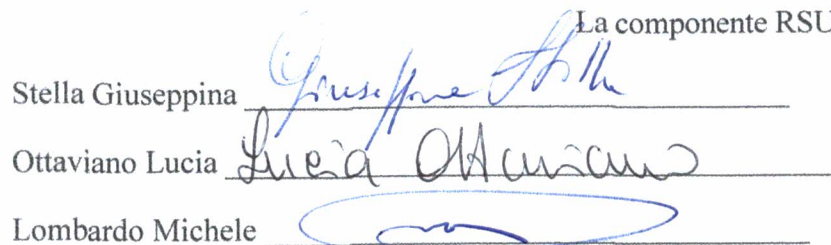 La componente RSU
Stella Giuseppina Giuseppina Stella
Ottaviano Lucia Lucia Ottaviano
Lombardo Michele